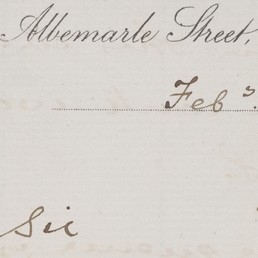 Albemarle Street,
Feb 3
Sir